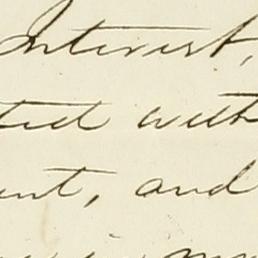 Interest,
ted with
ent, and